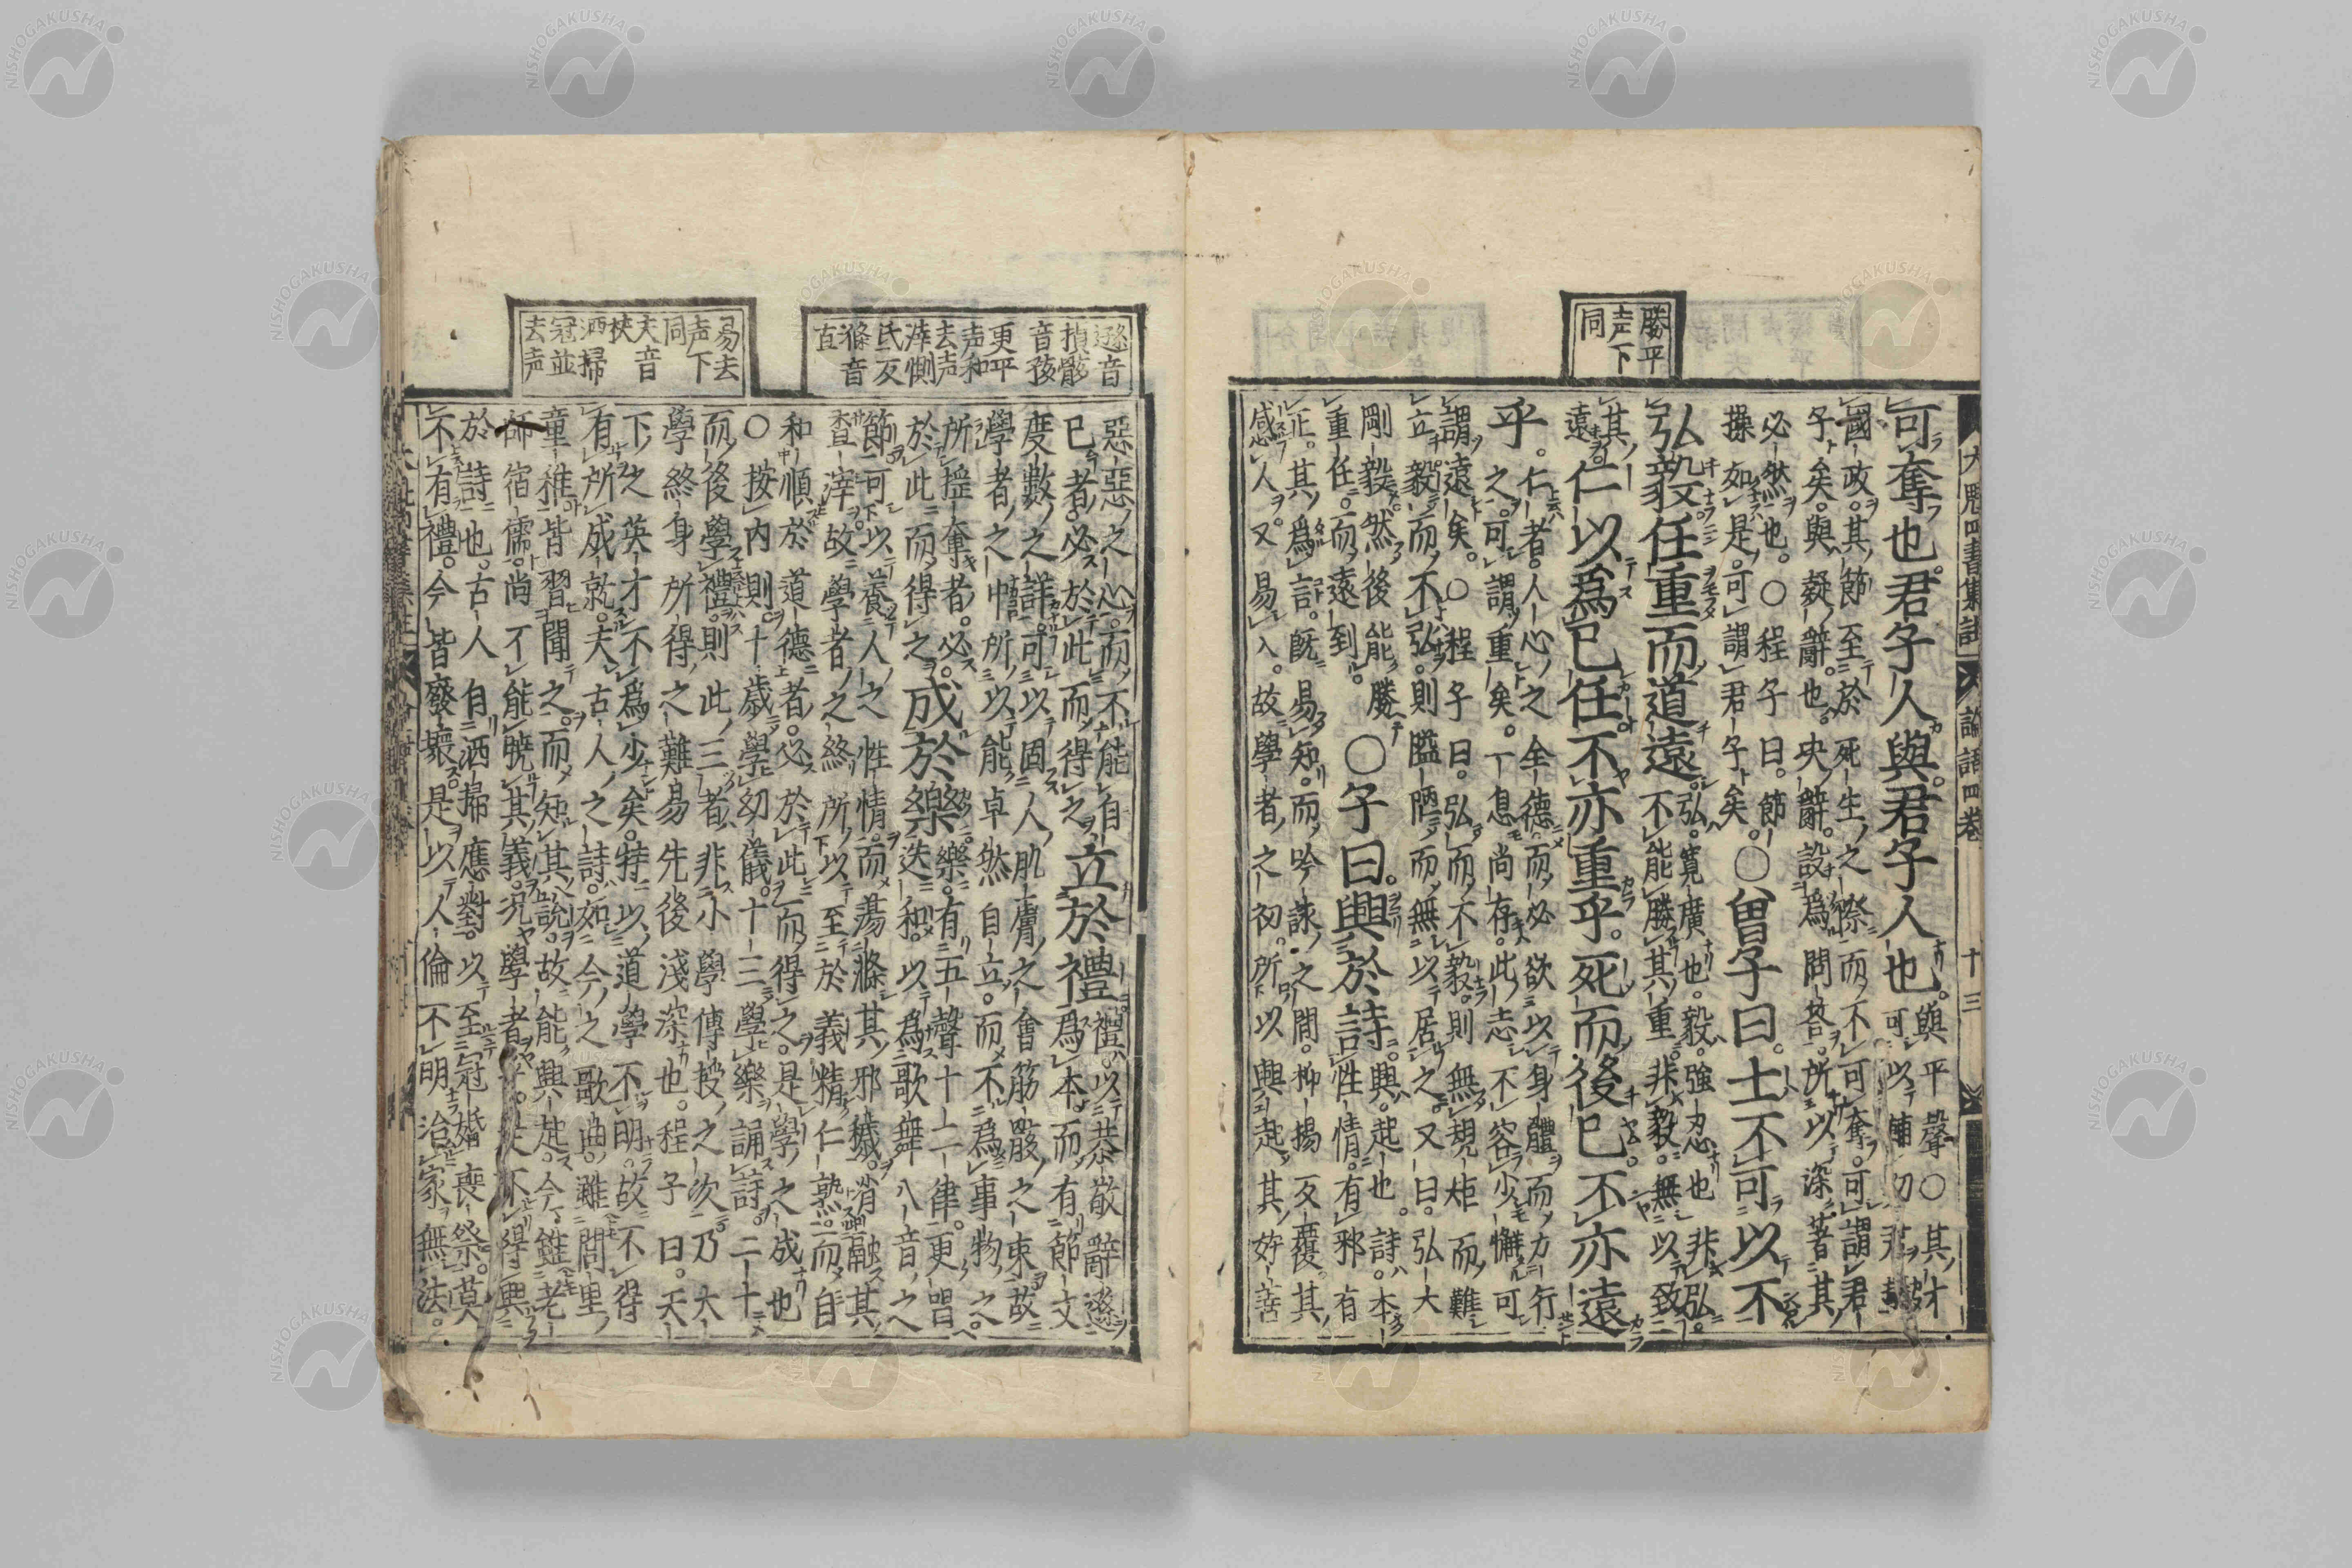 勝平
声下
同
大魁四書集註 論語四卷 十三
可奪也。君子人與。君子人也。
與平聲○其才
可以輔幼
國政。其節至於死生之際。而不可奪。可謂君
子矣。與。疑辭。也。决辭。設爲問答。所以深著其
必然也。○程子曰。節
操如是。可謂君子矣。
○曾子曰。士不可以不
弘毅任重而道遠。
弘。寬廣也。毅。強忍也。非弘。
不能勝其重。非毅。無以致
其
遠。
仁以爲己任不亦重乎。死而後已不亦遠
乎。
仁者。人心之全德。而必欲以身體而力行
之。可謂重矣。一息尚存。此志不容少懈。可
謂遠矣。○程子曰。弘而不毅。則無規矩而難
立。毅而不弘。則隘陋而無以居之。又曰。弘大
剛毅。然後能勝
重任。而遠到。
○子曰。興於詩。
興。起也。詩。本
性情。有邪有
正。其爲言。既易知。而吟詠之間。抑揚反覆。其
感人。又易入。故學者之初。所以興起其好善
遜音
損骸
音孩
更平
声和
去声
滓惻
氐反
滌音
直
易去
声下
同
夫音
扶
洒掃
冠並
去声
惡惡之心。而不能自
已者。必於此而得之。
立於禮
禮。以恭敬辭遜
爲本。而有節文
度數之詳。可以固人肌膚之會筋骸之束。故
學者之中。所以能卓然自立。而不爲事物之
所搖奪者。必
於此而得之。
成於樂
樂。有五聲十二律。更唱
迭和。以爲歌舞八音之
節。可以養人之性情。而蕩滌其邪穢。消融其
査滓。故學者之終。所以至於義精仁熟。而自
和順於道德者。必於此而得之。是學之成也
○按内則十歲學幼儀。十三學樂誦詩。二十
而後學禮。則此三者。非小學傳授之次。乃大
學終身所得之難易先後淺深也。程子曰。天
下之英才不爲少矣。特以道學不明。故不得
有所成就。夫古人之詩。如今之歌曲。雖閭里
童稚皆習聞之。而知其說。故能興起。今雖老
師宿儒。尚不能曉其義。况學者乎。是不得興
於詩也。古人自洒掃應對。以至冠婚喪祭。莫
不有禮。今皆廢壞。是以人倫不明治家無法。